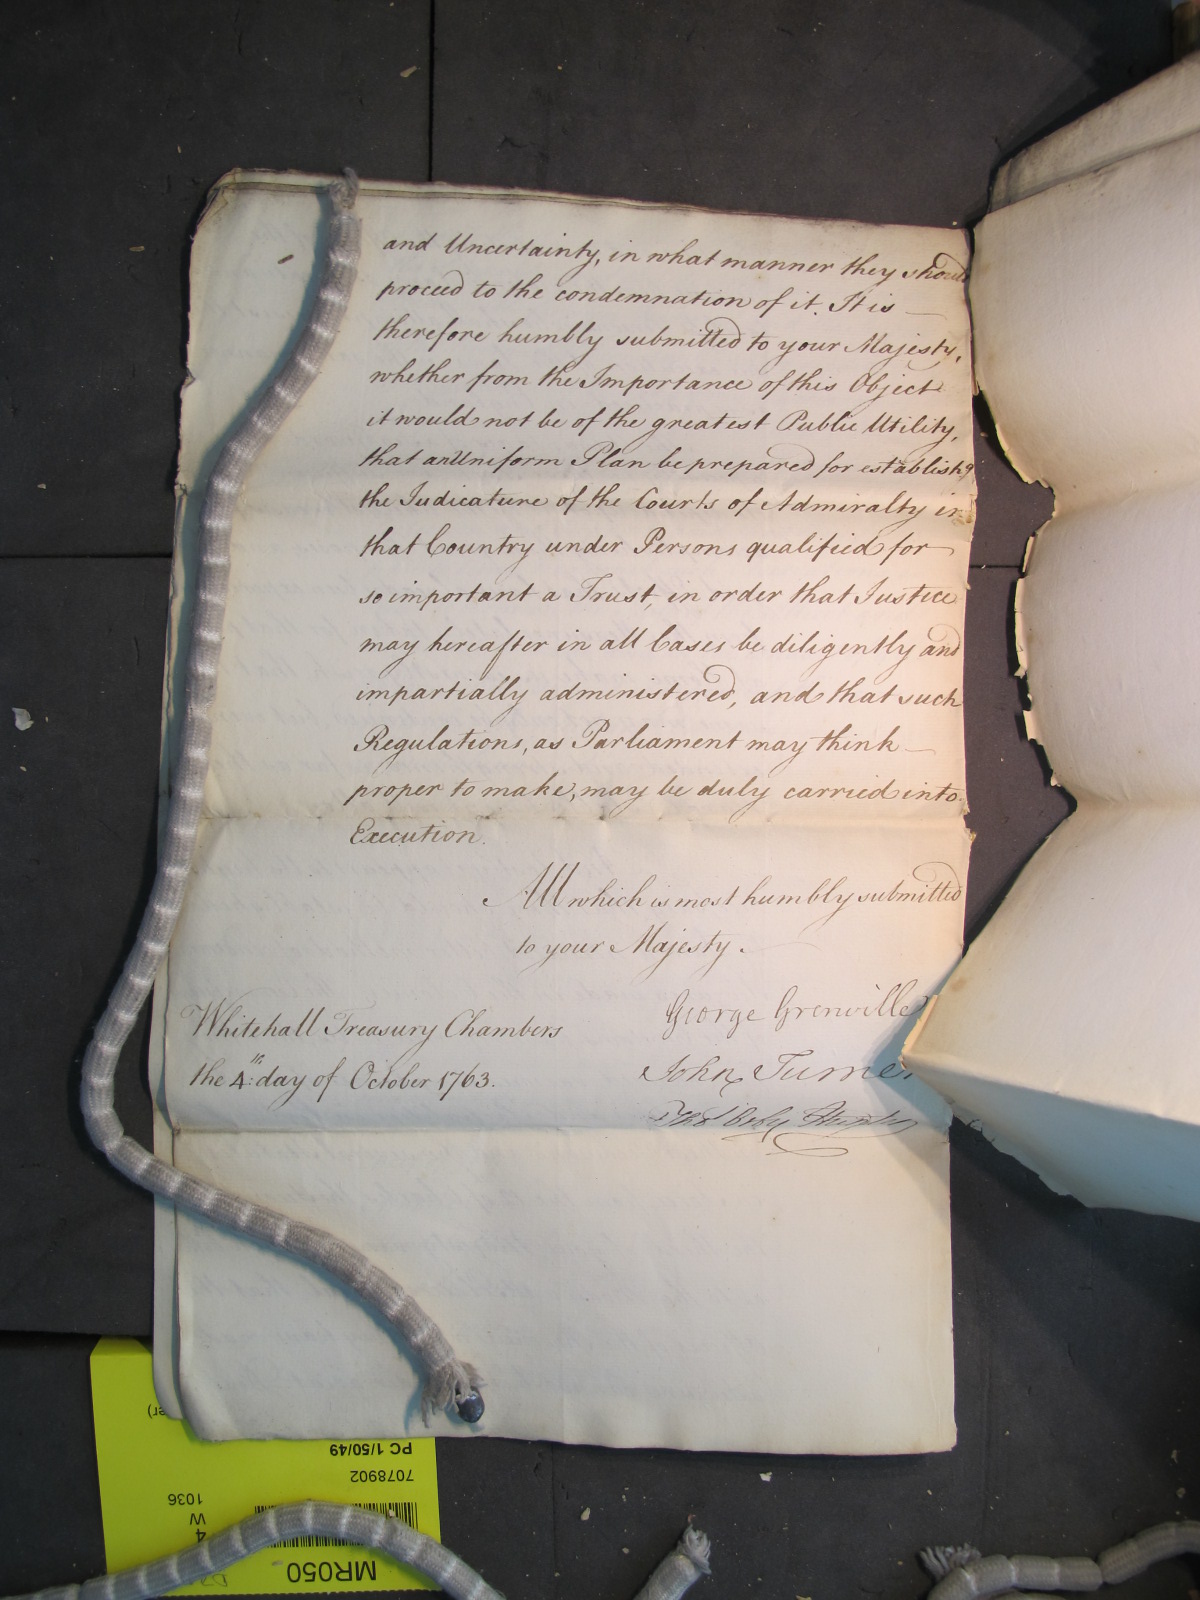 and Uncertainty, in what manner they should
proceed to the condemnation of it. It is
therefore humbly submitted to your Majesty,
whether from the Importance of this Object
it would not be of the greatest Public Utility,
that an Uniform Plan be prepared for establishg
the Judicature of the Courts of Admiralty in
that Country under Persons qualified for
so important a Trust, in order that Justice
may hereafter in all Cases be diligently and
impartially administered, and that such
Regulations, as Parliament may think
proper to make, may be duly carried into
Execution.
All which is most humbly submitted
to your Majesty.
George Grenville
John Turner
Whitehall Treasury Chambers
the 4th day of October 1763.
er)
PC 1/50/49
7078902
1036
W
4
MR050